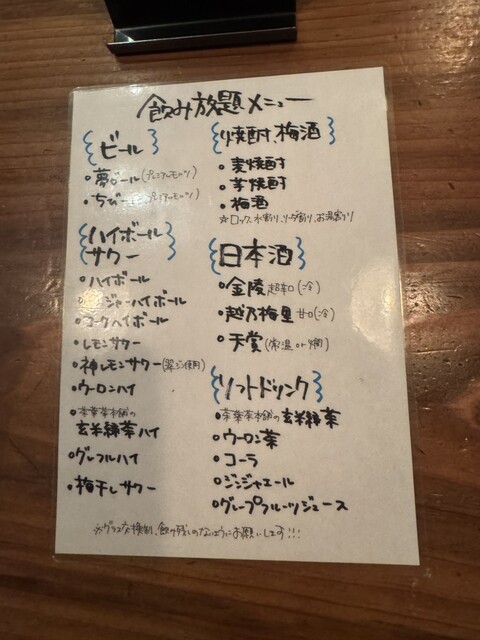 飲み放題メニュー
ビール
・夢ビール(プレミアムモルツ)
・ちびビール(プレミアムモルツ)
ハイボール
サワー
・ハイボール
・ジンジャーハイボール
・コークハイボール
・レモンサワー
・神レモンサワー(翠ジン使用)
・ウーロンハイ
・茶葉茶本舗の
玄米緑茶ハイ
・グレフルハイ
・梅干しサワー
焼酎、梅酒
・麦焼酎
・芋焼酎
・梅酒
☆ロック、水割り、ソーダ割り、お湯割り
日本酒
・金陵 超辛口(冷)
・越乃梅里 甘口(冷)
・天賞(常温or燗)
ソフトドリンク
・茶葉茶本舗の玄米緑茶
・ウーロン茶
・コーラ
・ジンジャエール
・グレープフルーツジュース
※グラス交換制、飲み残しのないようにお願いします!!!